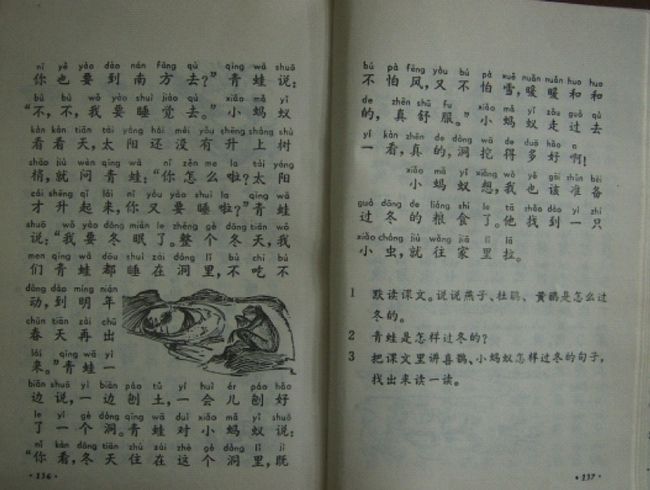 nǐ yě yào dào nán fāng qù qīng wā shuō
你也要到南方去?”青蛙说:
bù bù wǒ yào shuì jiào qù xiǎo mǎ yǐ
“不,不,我要睡觉去。”小蚂蚁
kàn kàn tiān tài yáng hái méi yǒu shēng shàng shù
看看天,太阳还没有升上树
shāo jiù wèn qīng wā nǐ zěn me la tài yáng
梢,就问青蛙:“你怎么啦?太阳
cái shēng qǐ lái nǐ yòu yào shuì la qīng wā
才升起来,你又要睡啦?”青蛙
shuō wǒ yào dōng mián le zhěng gè dōng tiān wǒ
说:“我要冬眠了。整个冬天,我
men qīng wā dōu shuì zài dòng lǐ bù chī bú
们青蛙都睡在洞里,不吃不
dòng dào míng nián
动,到明年
chūn tiān zài chū
春天再出
lái qīng wā yì
来。”青蛙一
biān shuō yì biān páo tǔ yí huìr páo hǎo
边说,一边刨土,一会儿刨好
le yí gè dòng qīng wā duì xiǎo mǎ yǐ shuō
了一个洞。青蛙对小蚂蚁说:
nǐ kàn dōng tiān zhù zài zhè gè dòng lǐ jì
“你看,冬天住在这个洞里,既
·136·
bú pà fēng yòu bú pà xuě nuǎn nuǎn huo huo
不怕风,又不怕雪,暖暖和和
de zhēn shū fu xiǎo mǎ yǐ zǒu guò qù
的,真舒服。”小蚂蚁走过去
yí kàn zhēn de dòng wā de duō hǎo a
一看,真的,洞挖得多好啊!
xiǎo mǎ yǐ xiǎng wǒ yě gāi zhǔn bèi
小蚂蚁想,我也该准备
guò dōng de liáng shi le tā zhǎo dào yì zhī
过冬的粮食了。他找到一只
xiǎo chóng jiù wǎng jiā lǐ lā
小虫,就往家里拉。
1 默读课文。说说燕子、杜鹃、黄鹂是怎么过
冬的。
2 青蛙是怎样过冬的?
3 把课文里讲喜鹊、小蚂蚁怎样过冬的句子,
找出来读一读。
·137·